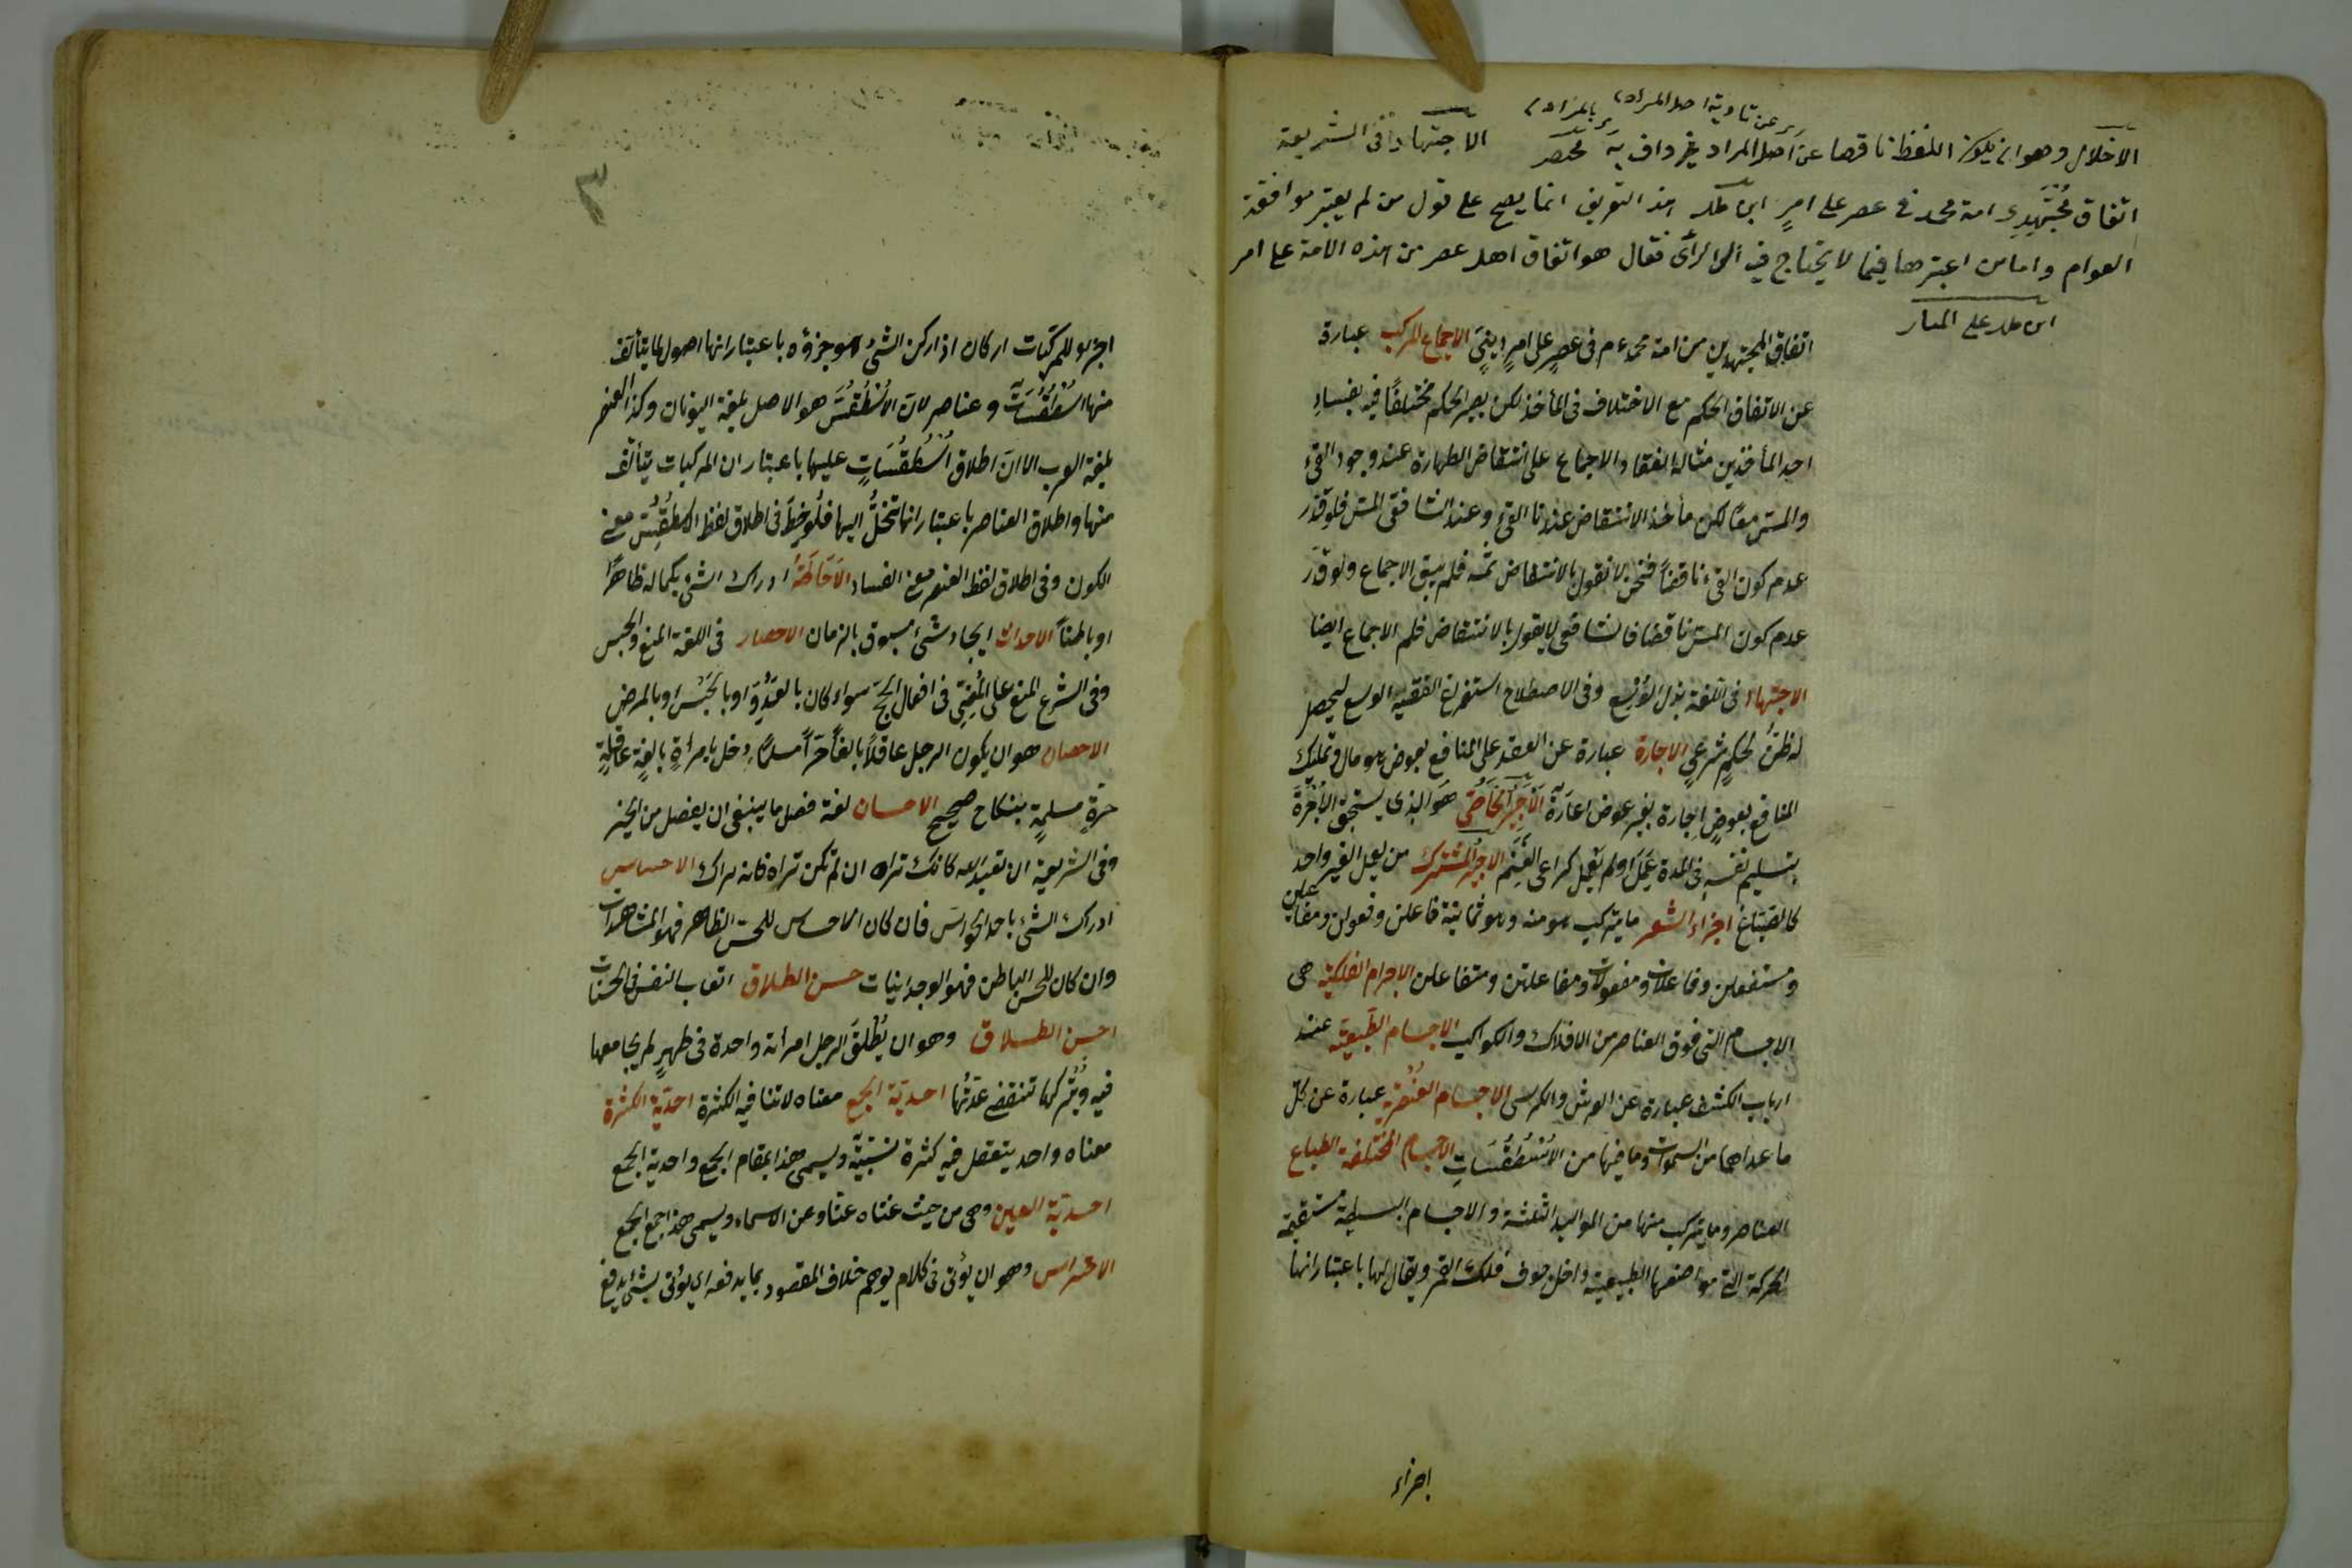 عن تادية اصل المراد
بالمراد
الاخلال وهو ان يكون اللفظ ناقصا عن اصل المراد غير واف به مختصر
الاجتهاد فى الشريعة
اتفاق مجتهدى امة محمد فى عصر على امر ابن ملك هذا التعريف انما يصح على قول من لم يعتبر موافقة
العوام واما من اعتبرها فيما لا يحتاج فيه الى الرأى فقال هو اتفاق اهل عصر من هذه الامة على امر
ابن ملك على المنار
اتفاق المجتهدين من امة محمد عم فى عصرٍ على امرٍ دينىٍّ الاجماع المركب عبارة
عن الاتفاق الحكم مع الاختلاف فى المأخذ لكن يصير الحكم مختلفًا فيه بفساد
احد المأخذين مثاله انعقاد الاجماع على انتقاض الطهارة عند وجود القئ
والمس معًا لكن مأخذ الانتقاض عندنا القئ وعند الشافعى المس فلو قدر
عدم كون القئ ناقضًا فنحن لا نقول بالانتقاض ثمه فلم يبق الاجماع ولو قدر
عدم كون المس ناقضا فالشافعى لا يقول بالانتقاض فلم الاجماع ايضا
الاجتهاد فى اللغة بذل الوُسْع وفى الاصطلاح استفراغ الفقيه الوسع ليحصل
له ظنٌ لحكمٍ شرعىٍ الاجارة عبارة عن العقد على المنافع بعوض هو مال وتمليك
المنافع بعوضٍ اجارة بغير عوض اعارة الاجير الخاص هو الذى يستحق الاُجْرَةَ
بتسليم نفسه فى المدة عَمِلَ او لم يعمل كراعى الغنم الاجير المشترك من يعمل لغير واحد
كالصَبَّاغ اجزاء الشعر ما يتركب هو منه وهو ثمانية فاعلن وفعولن ومفاعيلن
ومستفعلن وفاعلاتن ومفعولات ومفاعلتن ومتفاعلن الاجرام الفلكية هى
الاجسام التى فوق العناصر من الافلاك والكواكب الاجسام الطبيعية عند
ارباب الكشف عبارة عن العرش والكرسى الاجسام العُنْصُرية عبارة عن كل
ما عداهما من السموات وما فيها من الاُسْطُقُسَاتِ الاجسام المختلفة الطباع
العناصر وما يتركب منها من المواليد الثلثة والاجسام البسيطة مستقيمة
الحركة التى مواضعها الطبيعية داخل جوف فلك القمر ويقال لها باعتبار انها
اجزاء
٣
اجزاء للمركبات اركان اذ اركن الشئ هو جزؤه باعتبار انها اصول لما يتألف
منها اسْطُقُسَات وعناصر لان الاُسْطُقُسَ هو الاصل بلغة اليونان وكذا العنصر
بلغة العرب الا ان اطلاق اُسْطُقُسَاتٍ عليها باعتبار ان المركبات يتألف
منها واطلاق العناصر باعتبار انها تنحلُّ اليها فلُوحِظَ فى اطلاق لفظ الاسطقس معنى
الكون وفى اطلاق لفظ العنصر معنى الفساد الاحاطة ادراك الشئ بكماله ظاهرًا
او باطنًا الاحداث ايجاد شئ مسبوق بالزمان الاحصار فى اللغة المنع والحبس
وفى الشرع المنع على المُضِىِّ فى افعال الحج سواء كان بالعَدُوِّ او بالحَبْس او بالمرض
الاحصان هو ان يكون الرجل عاقلًا بالغًا حرًا مسلمًا دخل بامرأةٍ بالغةٍ عاقلةٍ
حرةٍ مسلمةٍ بنكاح صحيح الاحسان لغة فعل ما ينبغى ان يفعل من الخير
وفى الشريعة ان تعبد الله كانك تراه ان لم تكن تراه فانه يراك الاحساس
ادراك الشئ باحد الحواس فان كان الاحساس للحس الظاهر فهو المشاهدات
وان كان للحس الباطن فهو الوجدانيات حسن الطلاق اتعاب النفس فى الحسنات
احسن الطلاق وهو ان يُطلِّقَ الرجل امرأته واحدة فى طهرٍ لم يجامعها
فيه ويتركها تنقضى عدتُها احدية الجمع معناه لا تنافيه الكثرة احدية الكثرة
معناه واحد يتعقل فيه كثرة نسبية ويسمى هذا بمقام الجمع واحدية الجمع
احدية العين وهى من حيث غناه عنا وعن الاسماء ويسمى هذا جمع الجمع
الاحتراس وهو ان يؤتى فى كلام يوهم خلاف المقصود بما يدفعه اى يؤتى بشئ يدفع